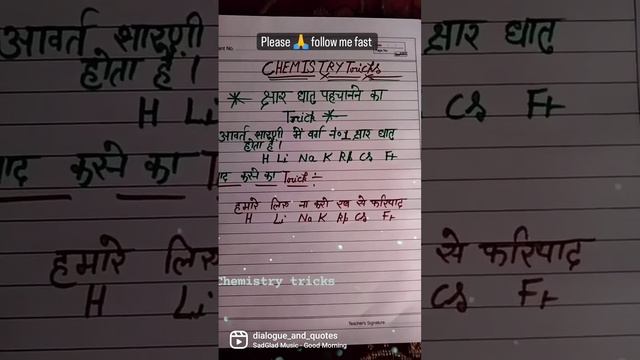 Please 🙏 follow me fast
CHEMISTRY Tricks
* क्षार धातु पहचानने का
Trick *
आवर्त सारणी में वर्ग नं० 1 क्षार धातु
होता है।
H Li Na K Rb Cs Fr
याद करने का Trick :-
हमारे लिए ना करो रब से फरियाद
H Li Na K Rb Cs Fr
Chemistry tricks
Teacher's Signature
dialogue_and_quotes
SadGlad Music - Good Morning
आवर्त सारणी
होता है।
H Li
करने का
हमारे लिए
H Li
क्षार धातु
Cs Fr
से फरियाद
Cs Fr